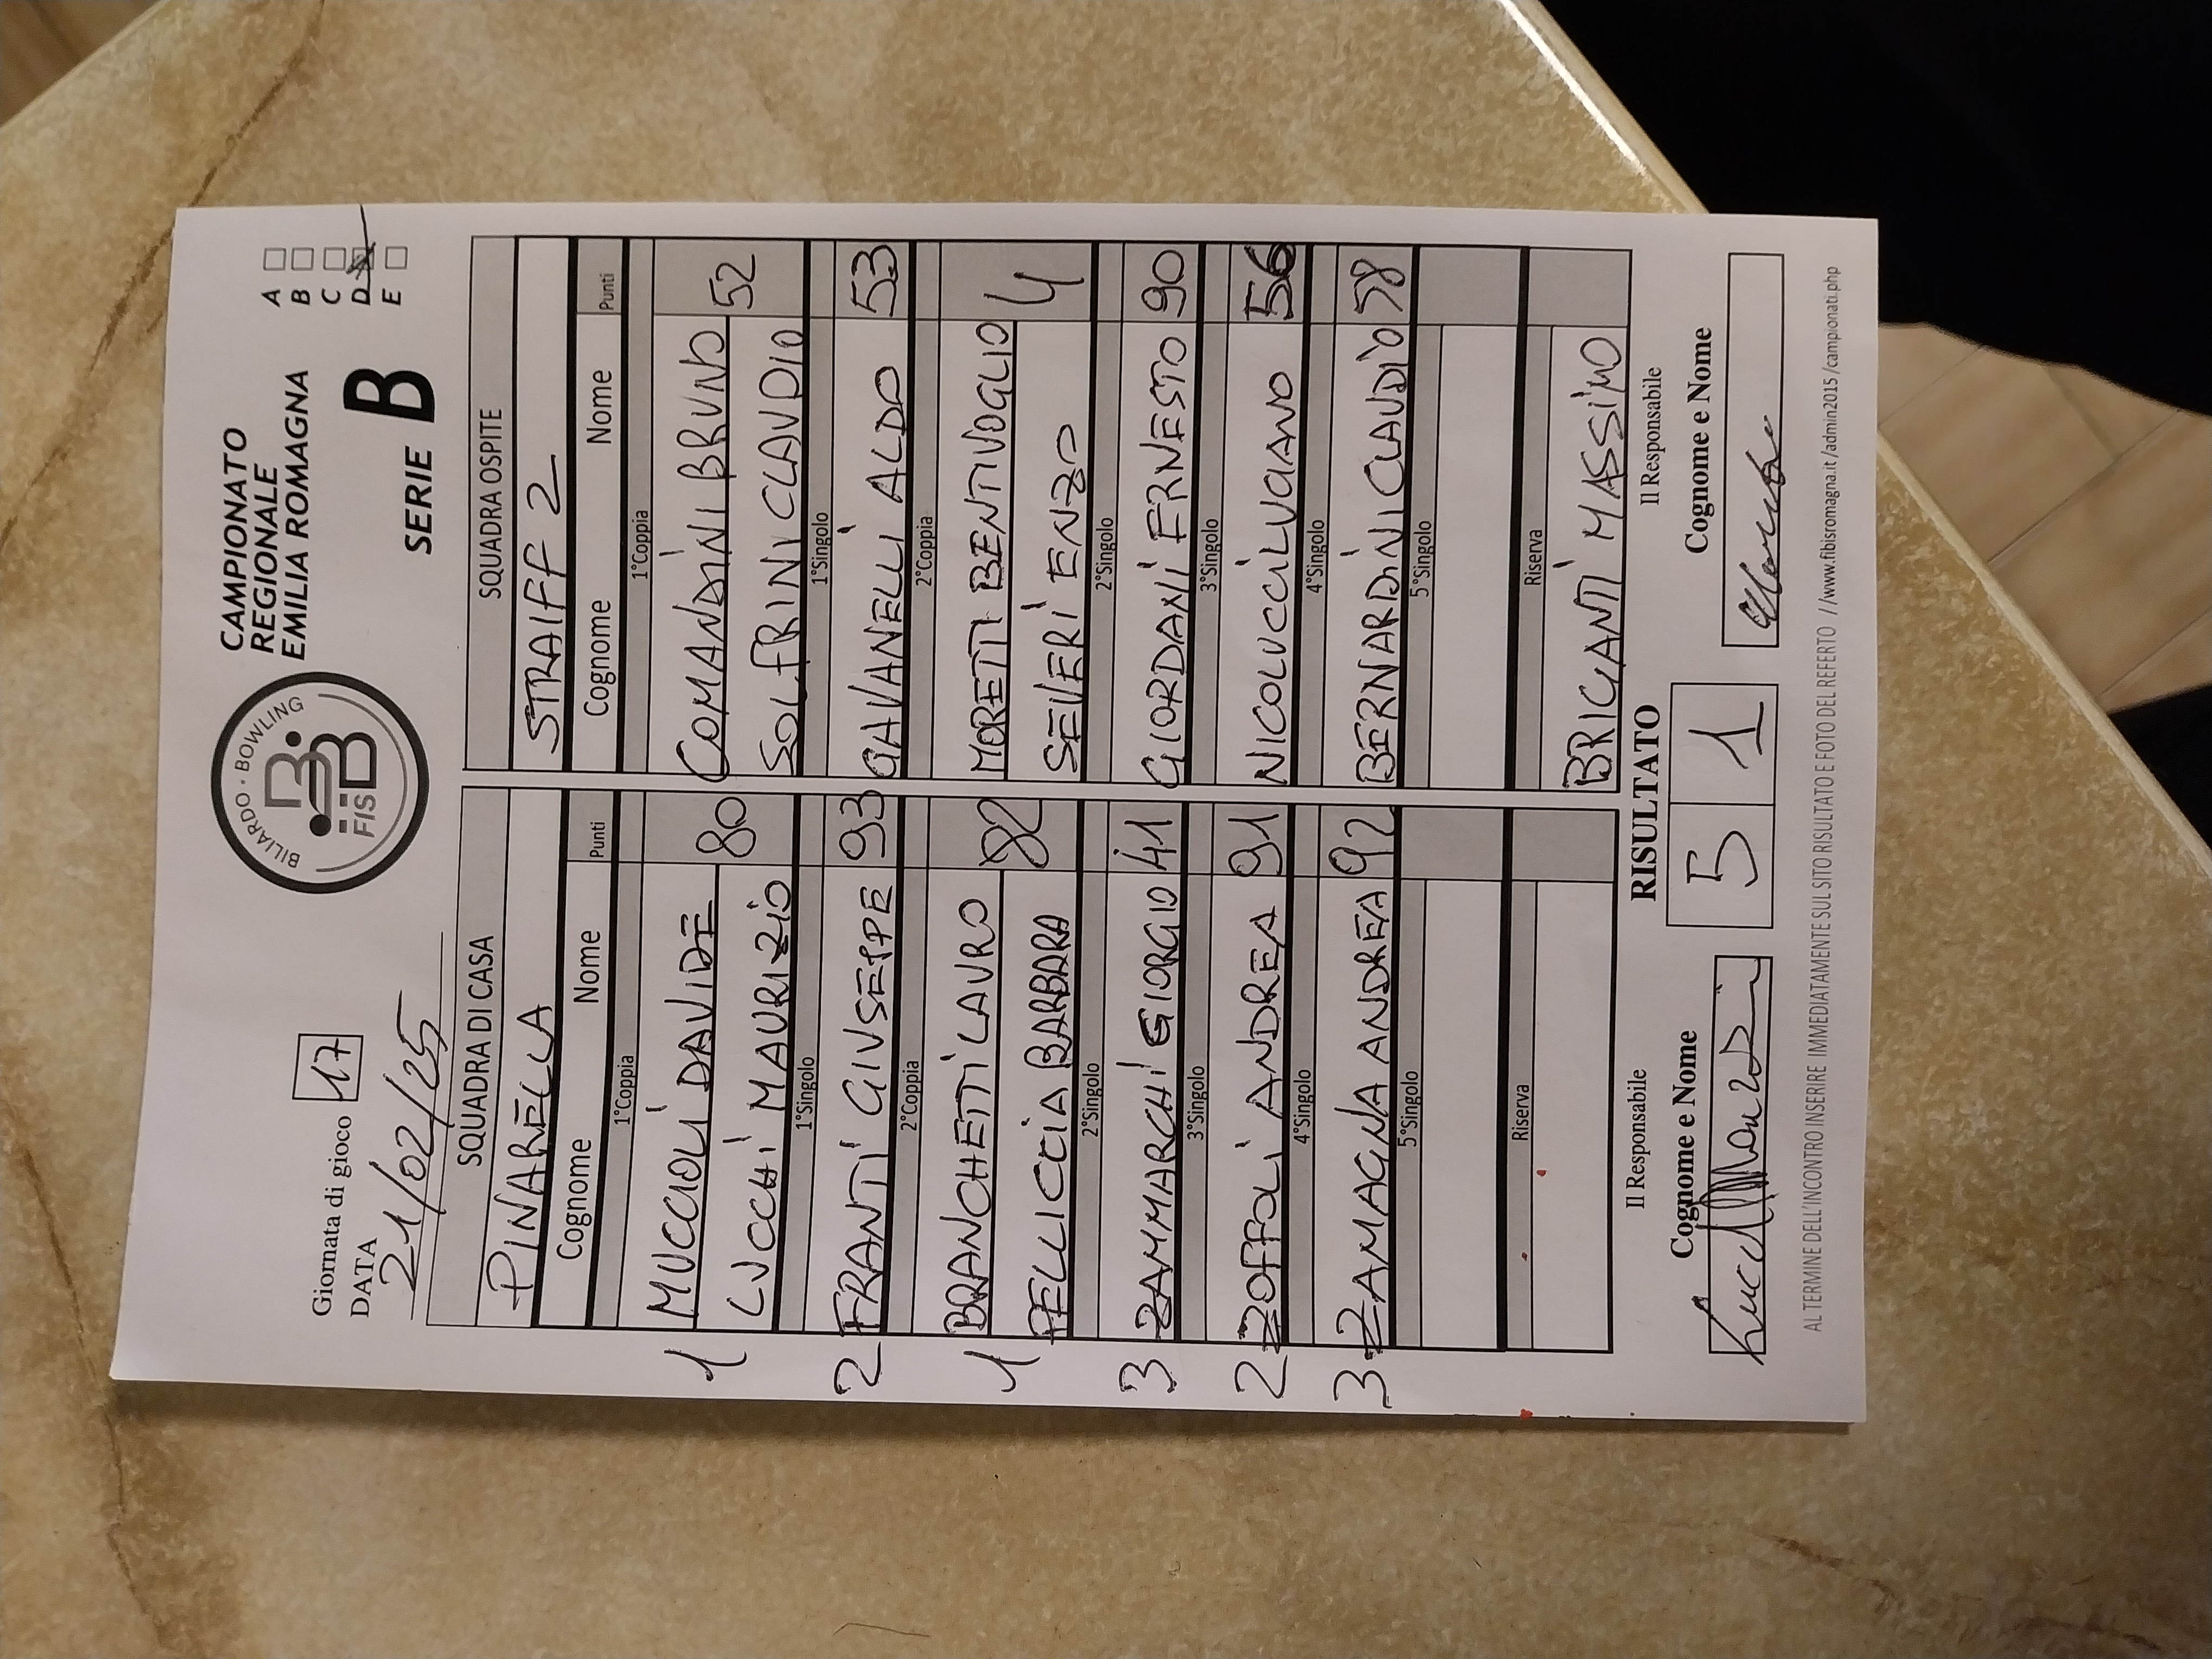 Giornata di gioco 17
DATA
21/02/25
BILIARDO · BOWLING
FISBB
CAMPIONATO
REGIONALE
EMILIA ROMAGNA
SERIE B
A
B
C
D
E
SQUADRA DI CASA
PINARELLA
Cognome Nome Punti
1°Coppia
1 MUCCIOLI DAVIDE
LUCCHI MAURIZIO 80
1°Singolo
2 FRANTI GIUSEPPE 93
2°Coppia
1 BRANCHETTI LAURO
PELLICCIA BARBARA 82
2°Singolo
3 ZAMMARCHI GIORGIO 41
3°Singolo
2 ZOFFOLI ANDREA 91
4°Singolo
3 ZAMAGNA ANDREA 92
5°Singolo
Riserva
SQUADRA OSPITE
STRAIFF 2
Cognome Nome Punti
1°Coppia
COMANDINI BRUNO
SOLFRINI CLAUDIO 52
1°Singolo
GAVANELLI ALDO 53
2°Coppia
MORETTI BENTIVOGLIO
SEVERI ENZO 4
2°Singolo
GIORDANI ERNESTO 90
3°Singolo
NICOLUCCI LUCIANO 56
4°Singolo
BERNARDINI CLAUDIO 58
5°Singolo
Riserva
BRIGANTI MASSIMO
Il Responsabile
Cognome e Nome
RISULTATO
5 1
Il Responsabile
Cognome e Nome
AL TERMINE DELL'INCONTRO INSERIRE IMMEDIATAMENTE SUL SITO RISULTATO E FOTO DEL REFERTO //www.fibisromagna.it/admin2015/campionati.php